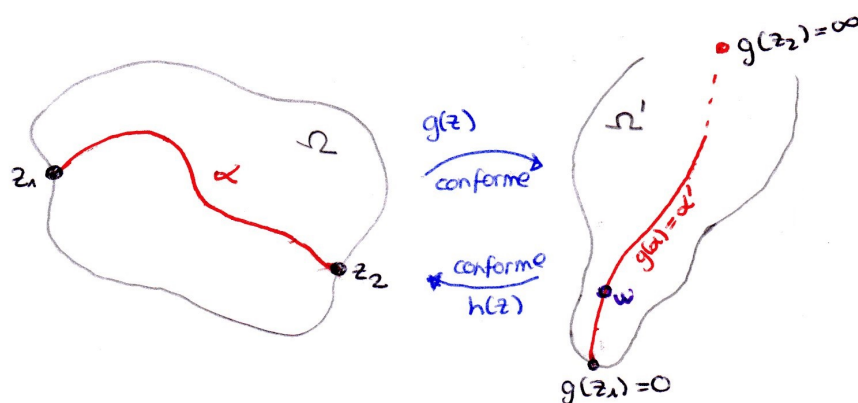 z₁
α
Ω
z₂
g(z)
conforme
conforme
h(z)
Ω'
g(z₂)=∞
g(α)=α'
w
g(z₁)=0